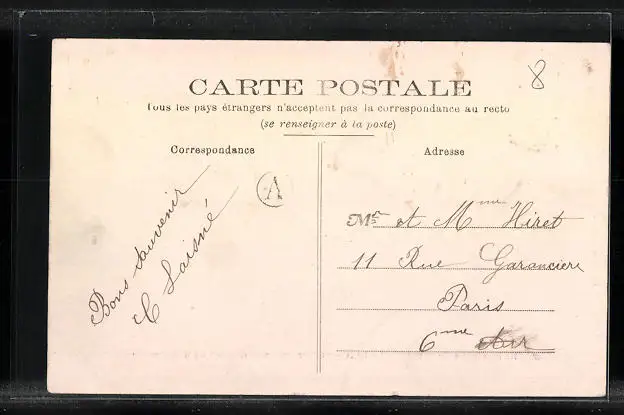 8
CARTE POSTALE
Tous les pays étrangers n'acceptent pas la correspondance au recto
(se renseigner à la poste)
Correspondance
Adresse
A
Bons souvenir
C Laisné
Mr et Mme Hiret
11 Rue Garancière
Paris
6me Arr